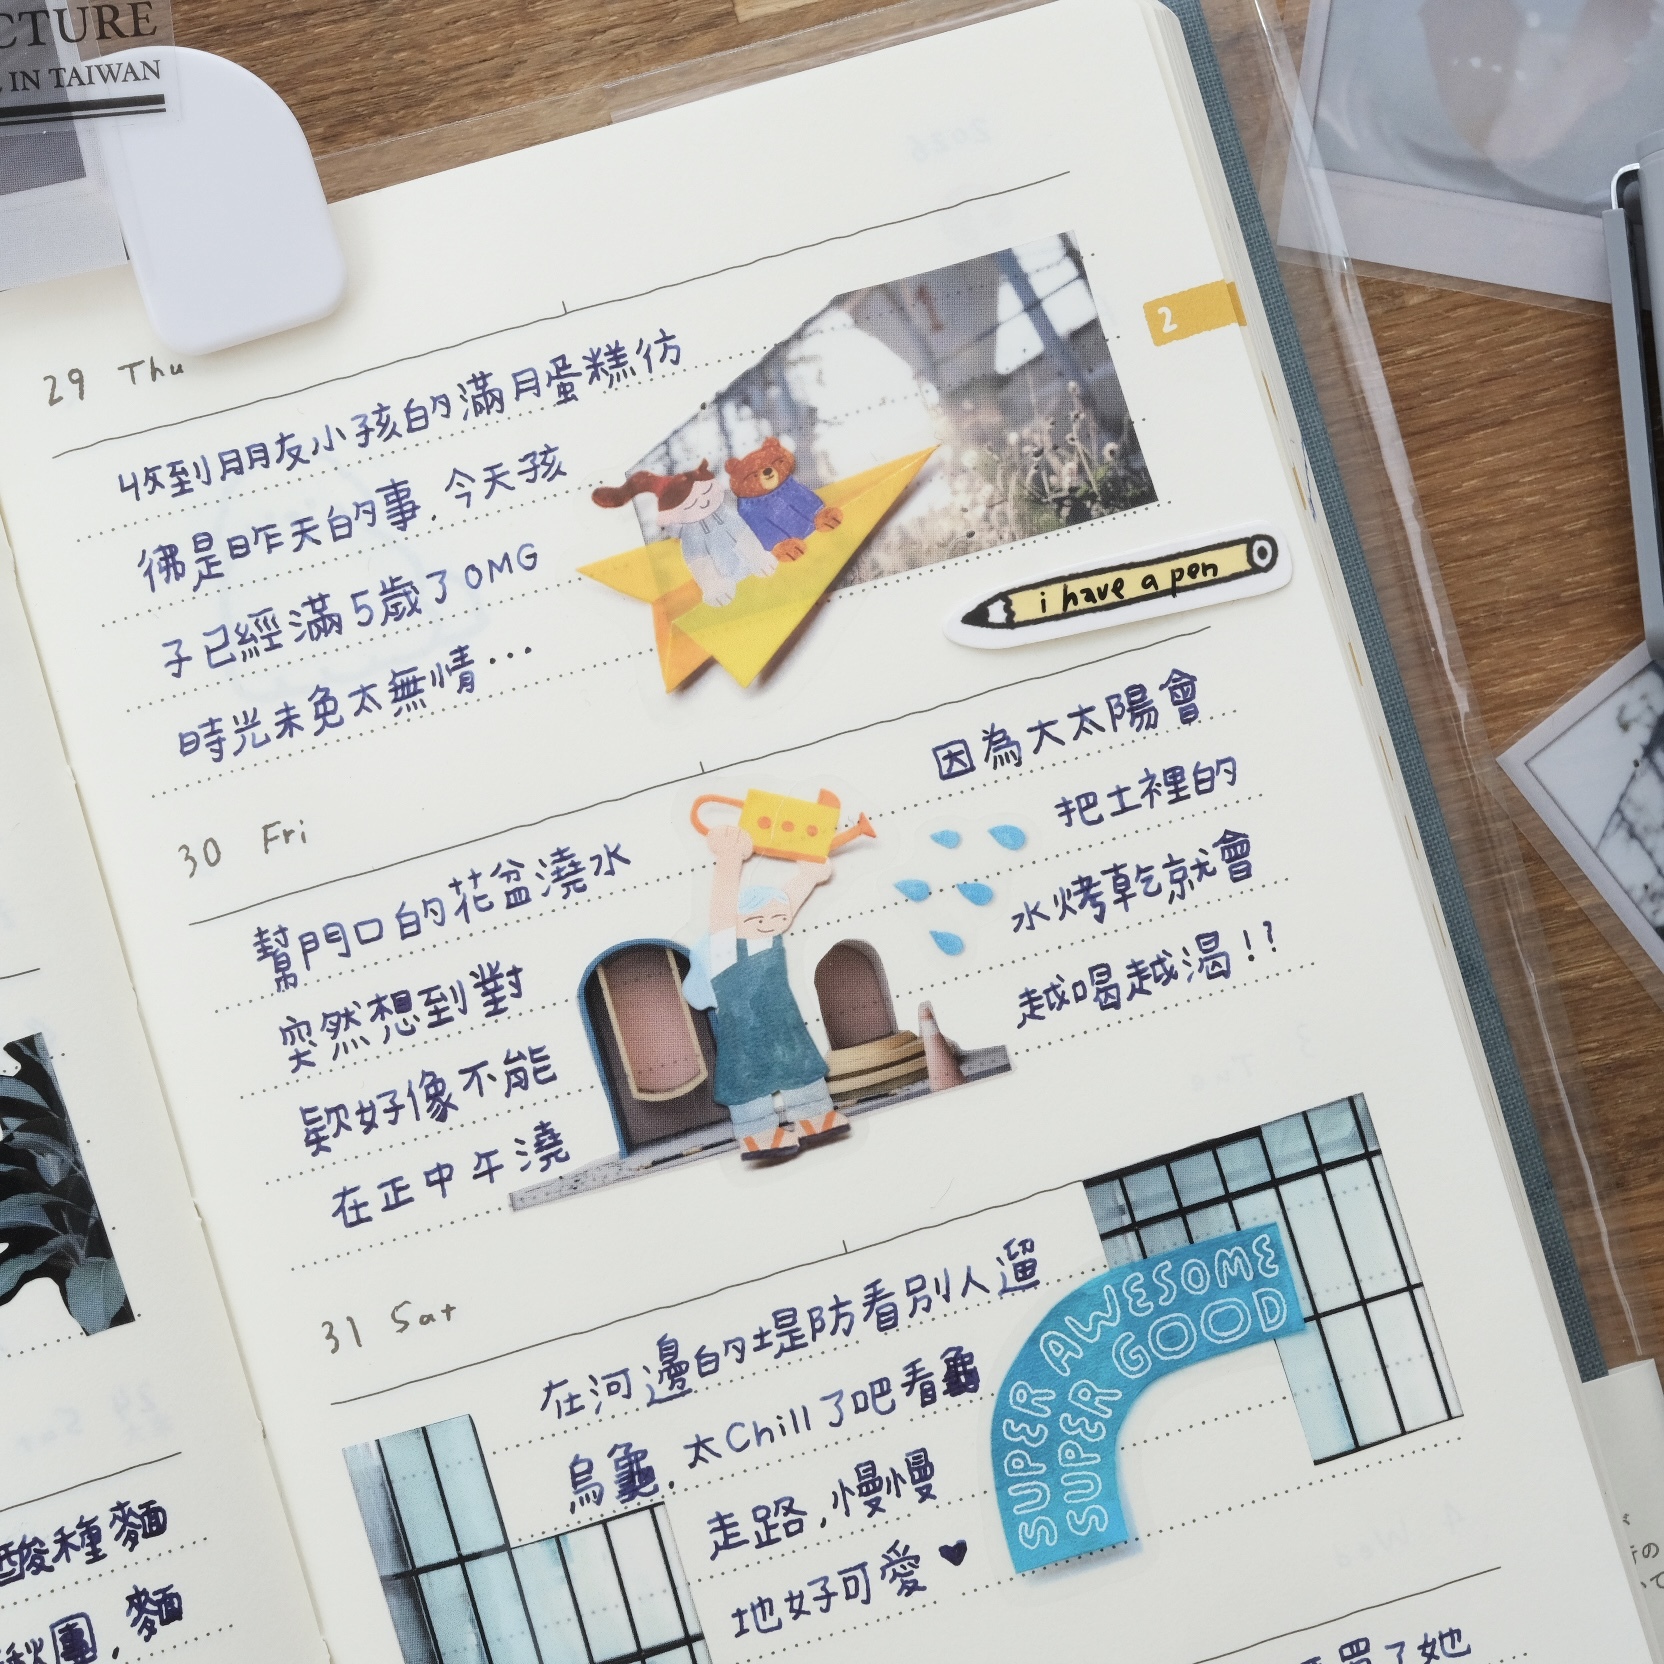 CTURE
IN TAIWAN
2
29 Thu
收到朋友小孩的滿月蛋糕彷
彿是昨天的事.今天孩
子已經滿5歲了OMG
時光未免太無情...
i have a pen
30 Fri
幫門口的花盆澆水
突然想到對
欸好像不能
在正中午澆
因為大太陽會
把土裡的
水烤乾就會
越喝越渴!?
31 Sat
在河邊的堤防看別人遛
烏龜.太Chill了吧看龜
走路,慢慢
地好可愛♥
SUPER AWESOME
SUPER GOOD
酸種麵
團,麵
買了她